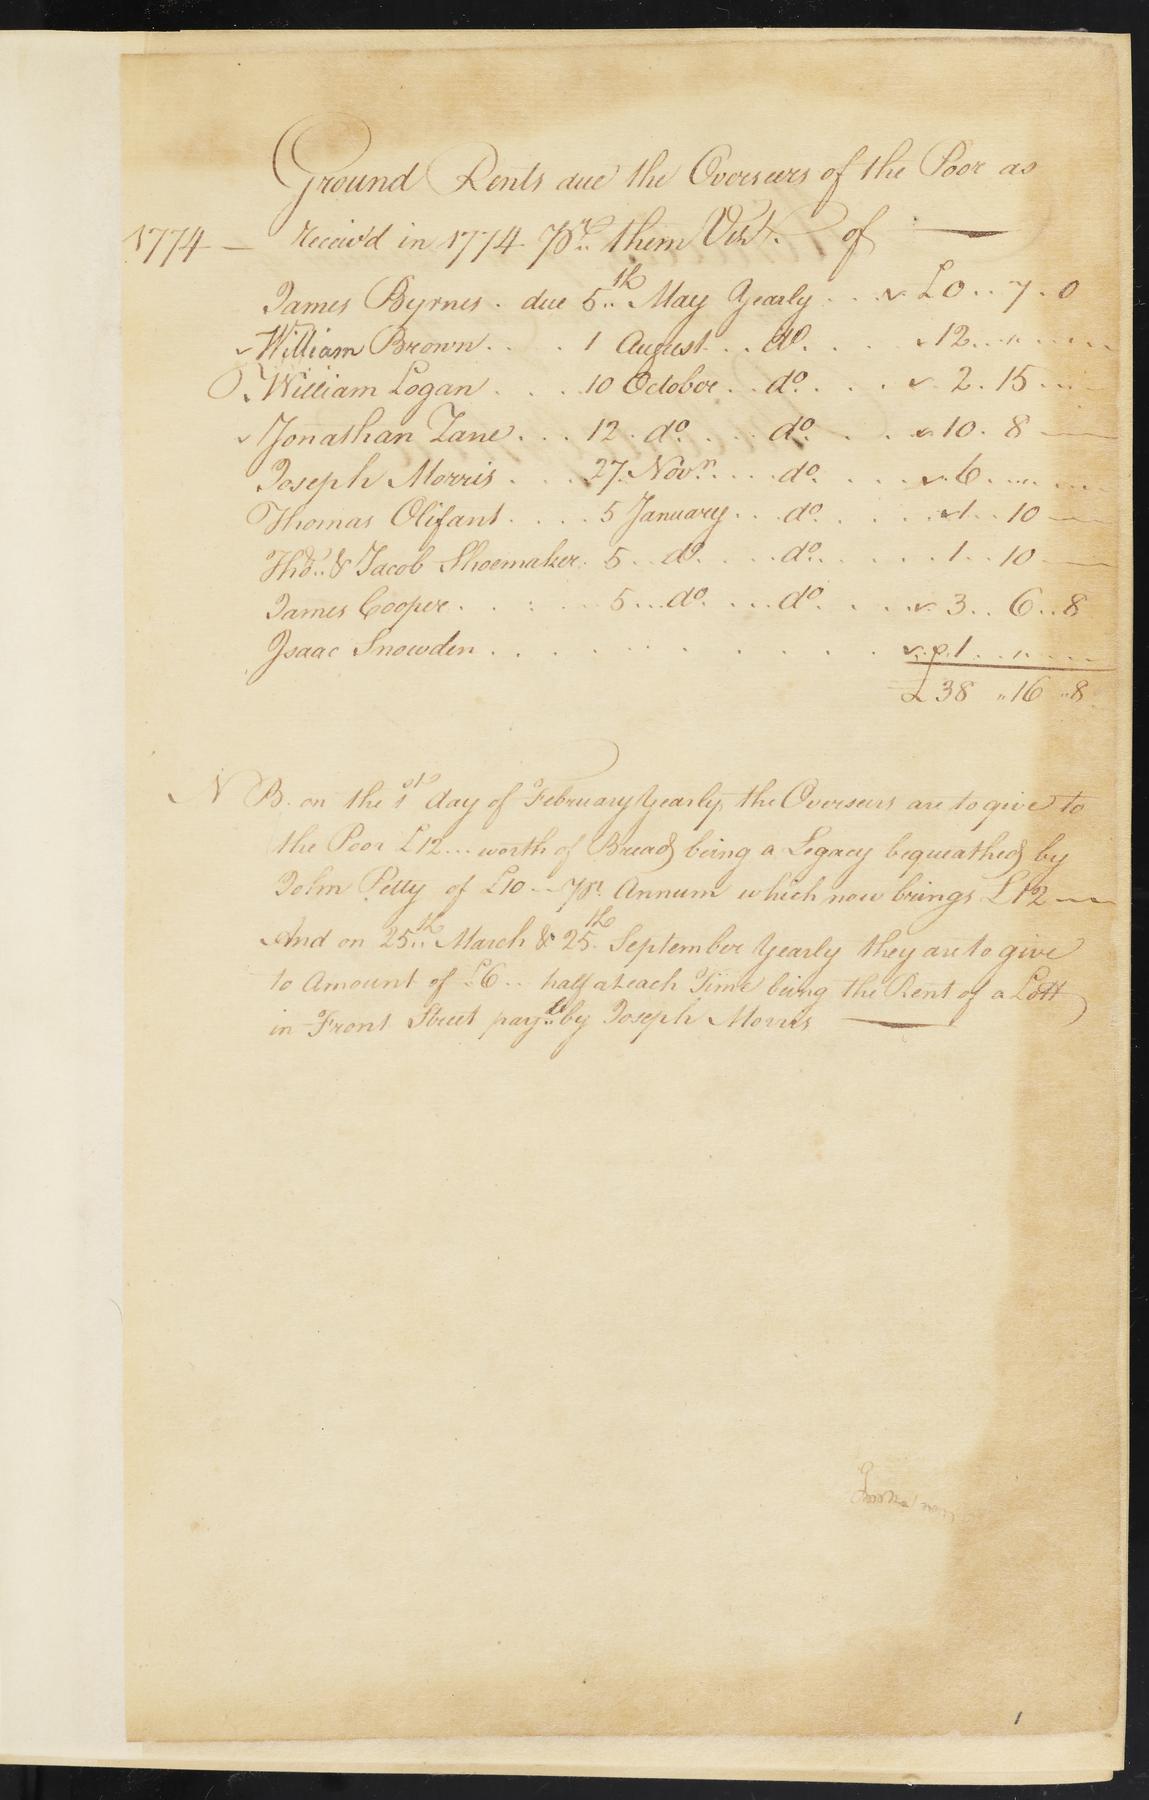 Ground Rents due the Overseers of the Poor as
1774 — Receiv'd in 1774 pr. them Vizt. of
James Byrnes . due 5th May Yearly . . £0 .. 7 . 0
William Brown . . . 1 August . . do. . . . 12 .. " ..
William Logan . . . 10 October . . do. . . . 2 . 15 ..
Jonathan Zane . . . 12 . do. . . . do. . . . 10 . 8 —
Joseph Morris . . . 27 Novr. . . . do. . . . 6 . " ..
Thomas Olifant . . . . 5 January . . do. . . . 1 .. 10 —
Thos. & Jacob Shoemaker . 5 .. do. . . . do. . . . 1 .. 10 —
James Cooper . . . . 5 ... do. . . . do. . . . 3 .. 6 .. 8
Isaac Snowden . . . . . . . . . 1 .. " ..
£38 " 16 " 8
N B. on the 1st day of February Yearly, the Overseers are to give to
the Poor £12 ... worth of Bread being a Legacy bequeathed by
John Petty of £10 -- pr. Annum which now brings £12 —
And on 25th March & 25th September Yearly they are to give
to Amount of £6 .. half at each Time being the Rent of a Lott
in Front Street payble by Joseph Morris —
1